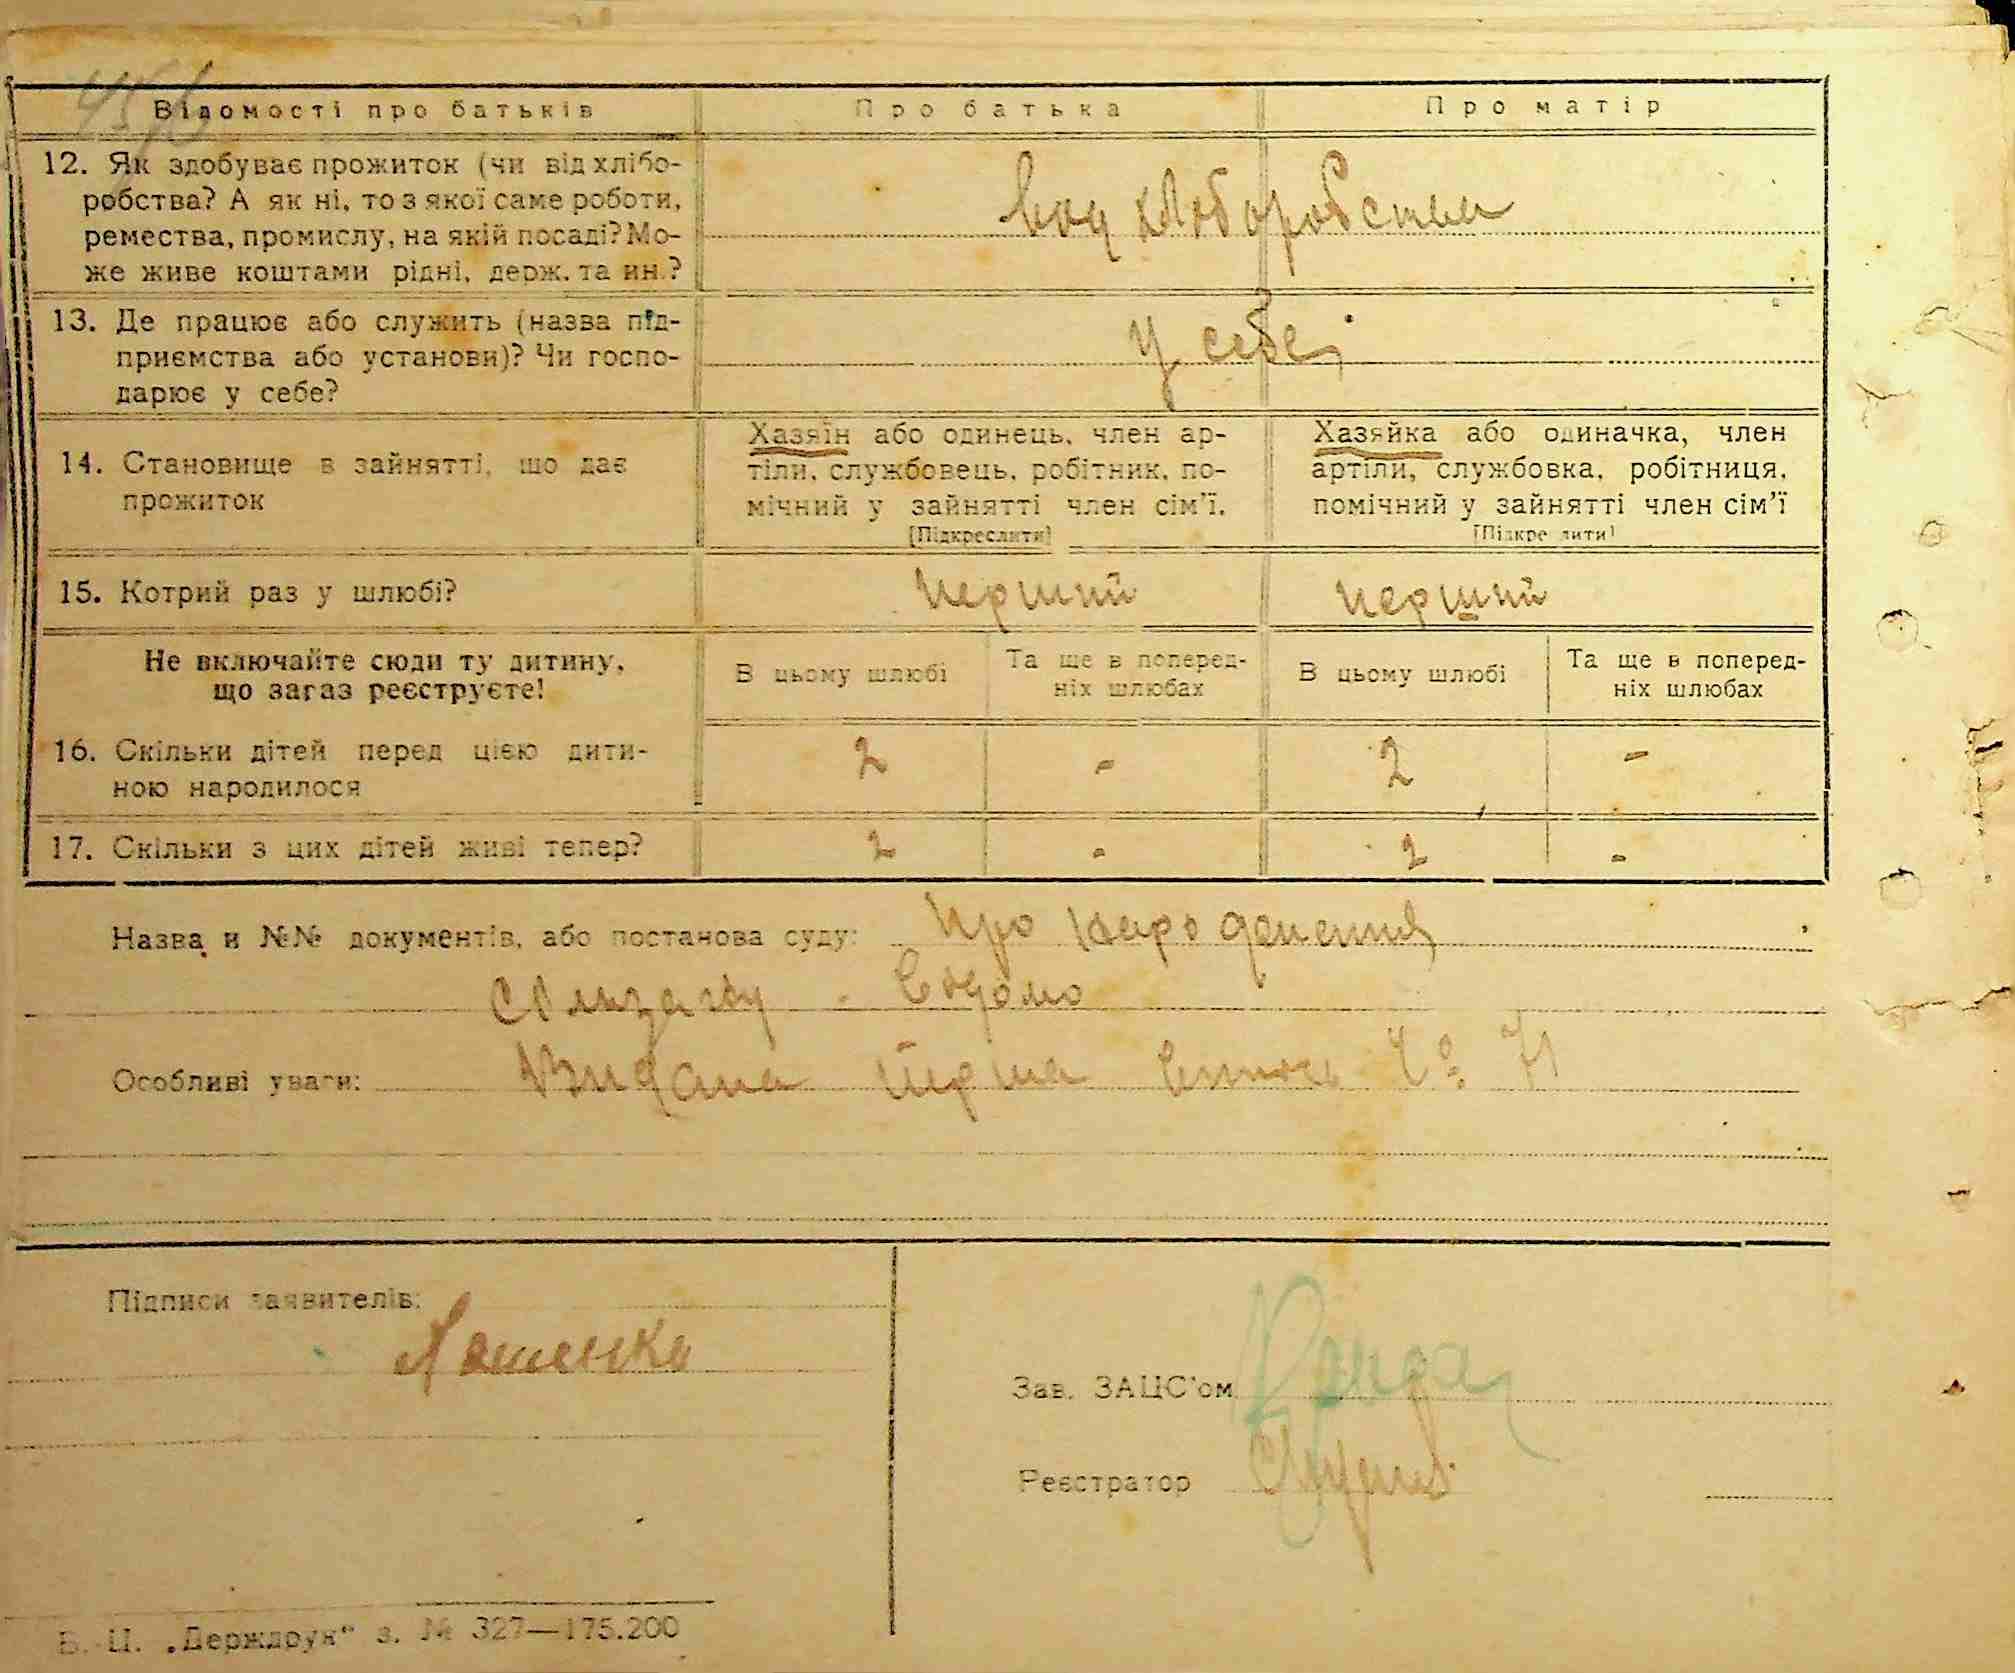 Відомості про батьків Про батька Про матір
12. Як здобуває прожиток (чи від хлібо-
робства? А як ні, то з якої саме роботи,
ремества, промислу, на якій посаді? Мо-
же живе коштами рідні, держ. та ин.?
вод хлоборобства
13. Де працює або служить (назва під-
приємства або установи)? Чи госпо-
дарює у себе?
у себе
14. Становище в зайнятті, що дає
прожиток
Хазяїн або одинець, член ар-
тіли, службовець, робітник, по-
мічний у зайнятті член сім'ї.
[Підкреслити]
Хазяйка або одиначка, член
артіли, службовка, робітниця,
помічний у зайнятті член сім'ї
[Підкре лити]
15. Котрий раз у шлюбі? перший перший
Не включайте сюди ту дитину,
що зараз реєструєте!
В цьому шлюбі
Та ще в поперед-
ніх шлюбах
В цьому шлюбі
Та ще в поперед-
ніх шлюбах
16. Скільки дітей перед цією дити-
ною народилося
2 - 2 -
17. Скільки з цих дітей живі тепер? 2 - 2 -
Назва и №№ документів, або постанова суду: про
Водомо
Особливі уваги: Видана перша 71
Підписи заявителів:
Ляшенко
Зав. ЗАЦС'ом
Реєстратор
Б.-Ц. „Держдрук“ з. № 327—175.200